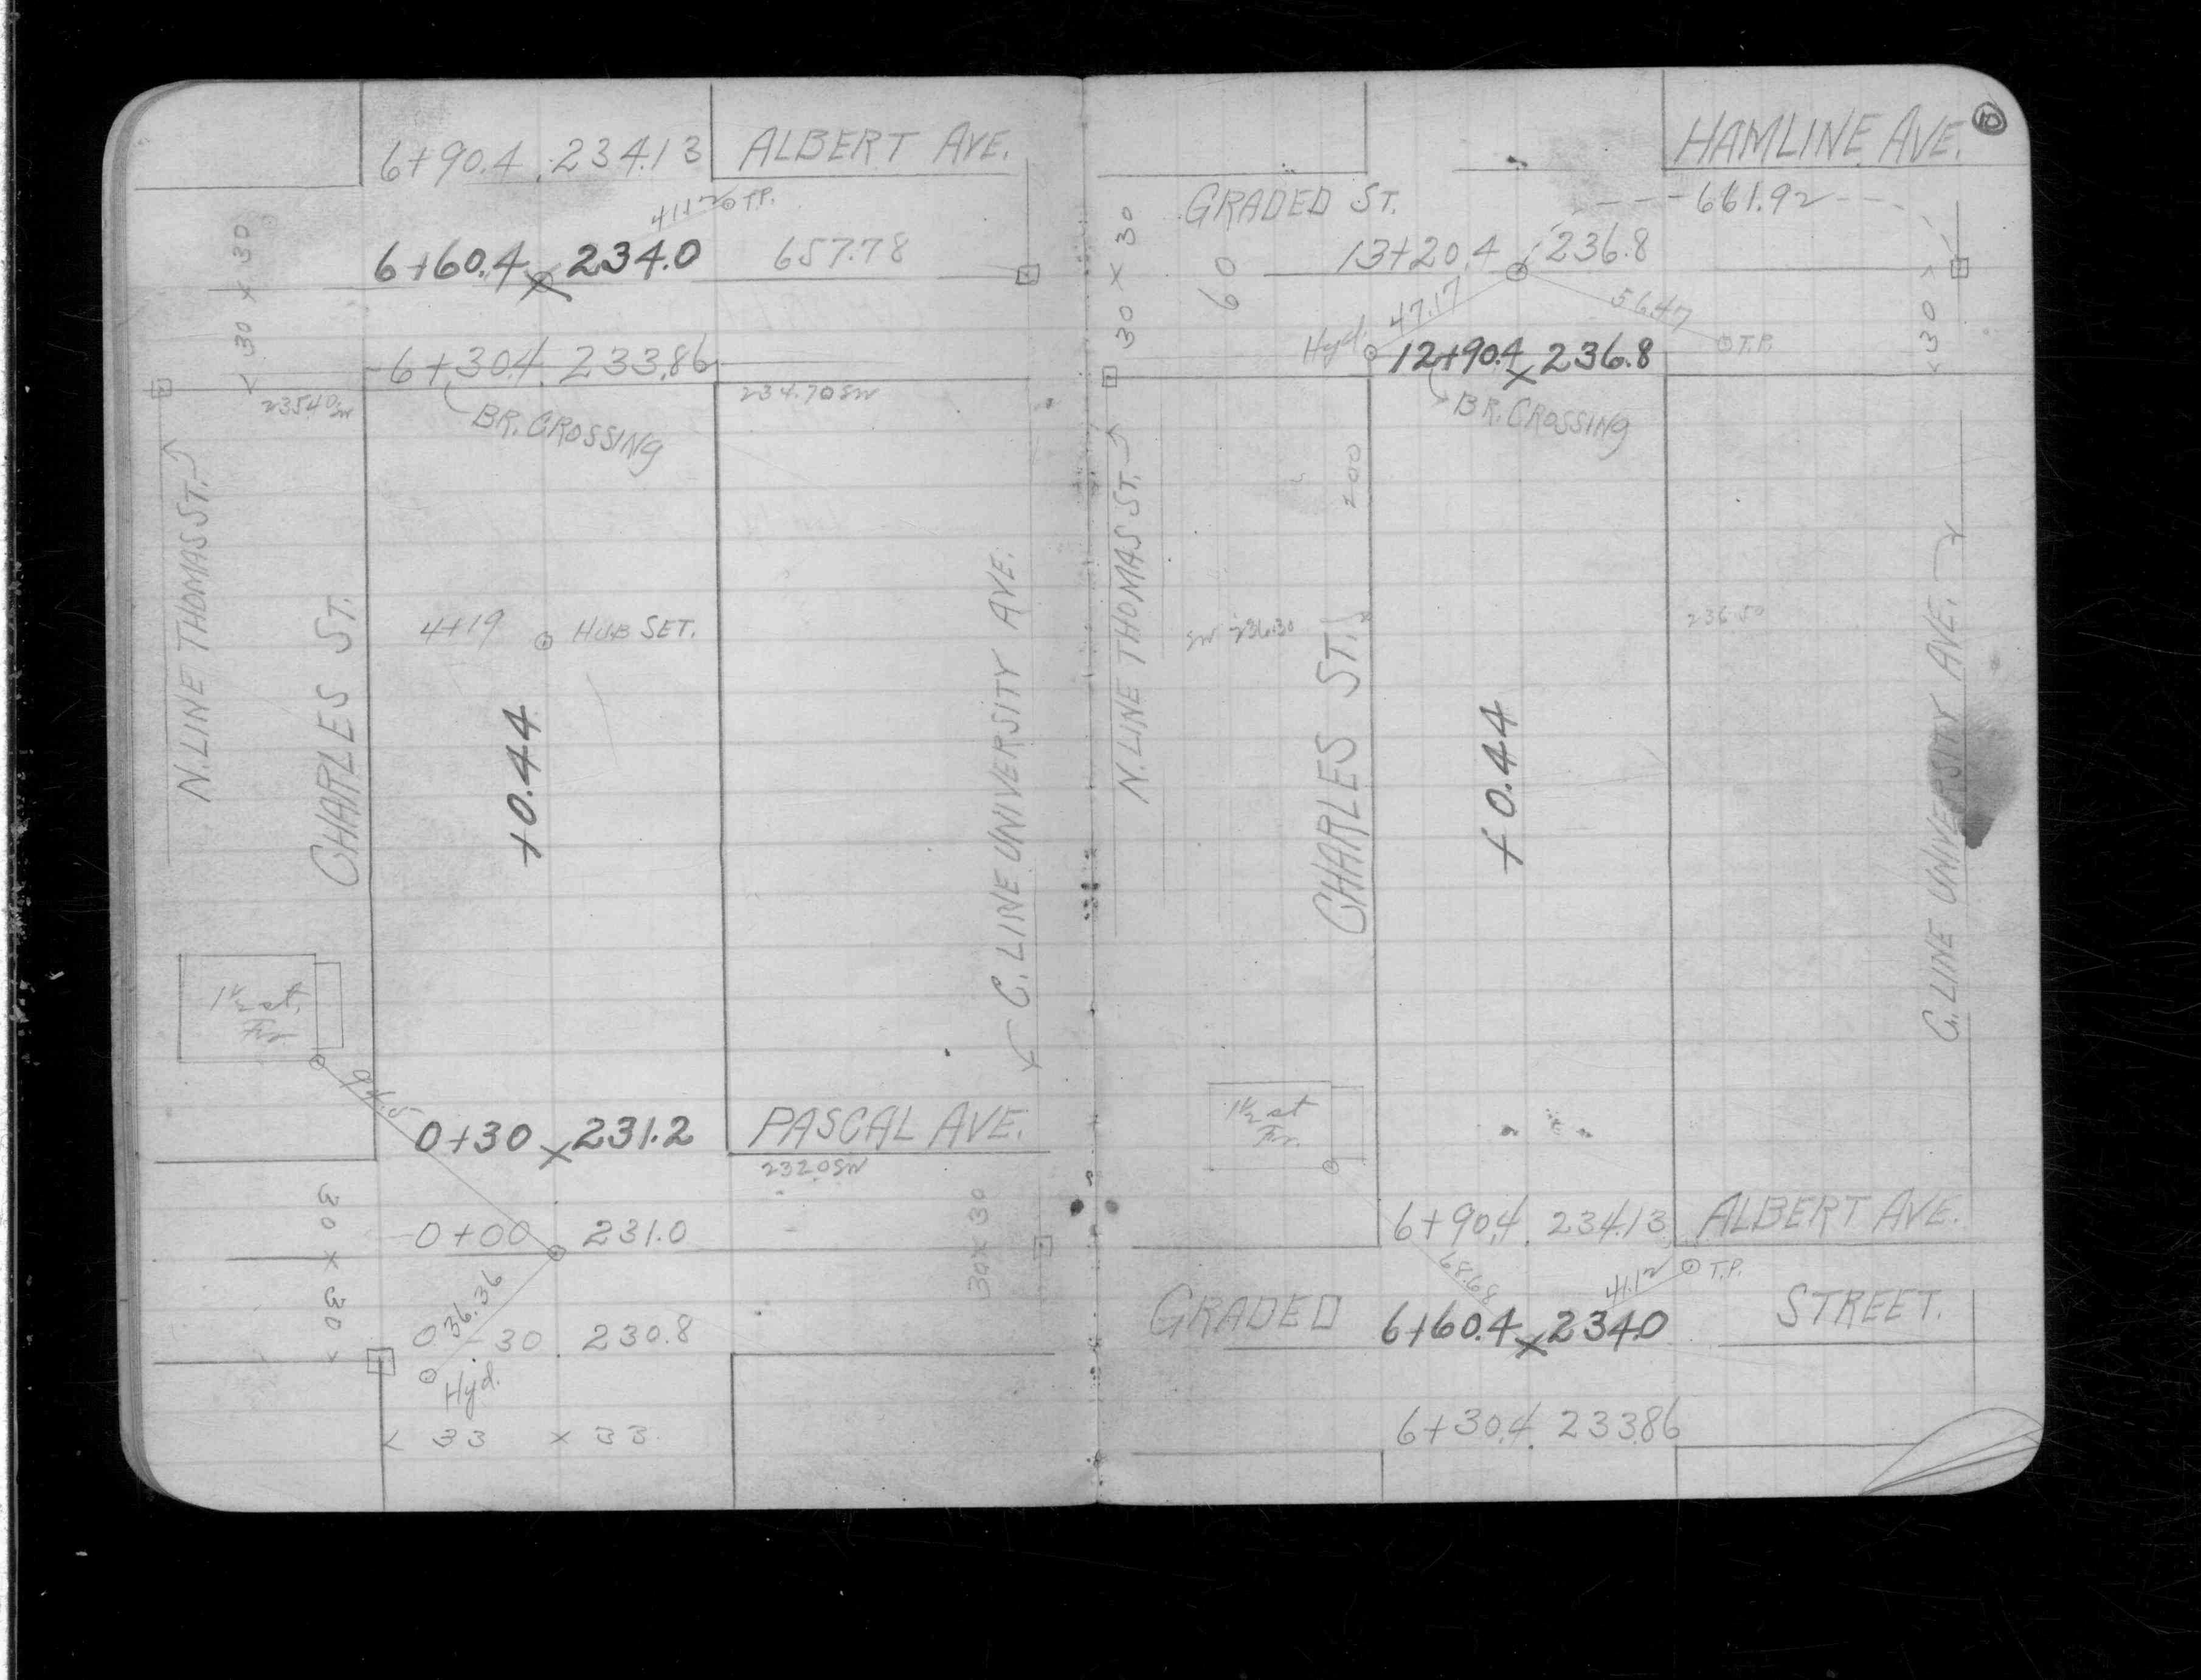 6+90.4 234.13 ALBERT AVE.
41.12 T.P.
6+60.4 x 234.0 657.78
30 x 30
6+30.4 233.86
235.40 SW
234.70 SW
BR. CROSSING
N. LINE THOMAS ST.
CHARLES ST.
4+19 HUB SET.
+0.44
C. LINE UNIVERSITY AVE.
1½ st.
Fr.
0+30 x 231.2 PASCAL AVE.
232.0 SW
30 x 30
0+00 231.0
30 x 30
36.36
0-30 230.8
Hyd.
33 x 33
HAMLINE AVE. 10
GRADED ST. 661.92
30 x 30
60
13+20.4 236.8
47.17
56.47
30
Hyd. 12+90.4 x 236.8 T.P.
BR. CROSSING
200
N. LINE THOMAS ST.
SW 236.30
236.50
CHARLES ST.
+0.44
C. LINE UNIVERSITY AVE.
1½ st
Fr.
6+90.4 234.13 ALBERT AVE.
68.68
41.12 T.P.
GRADED 6+60.4 x 234.0 STREET.
6+30.4 233.86